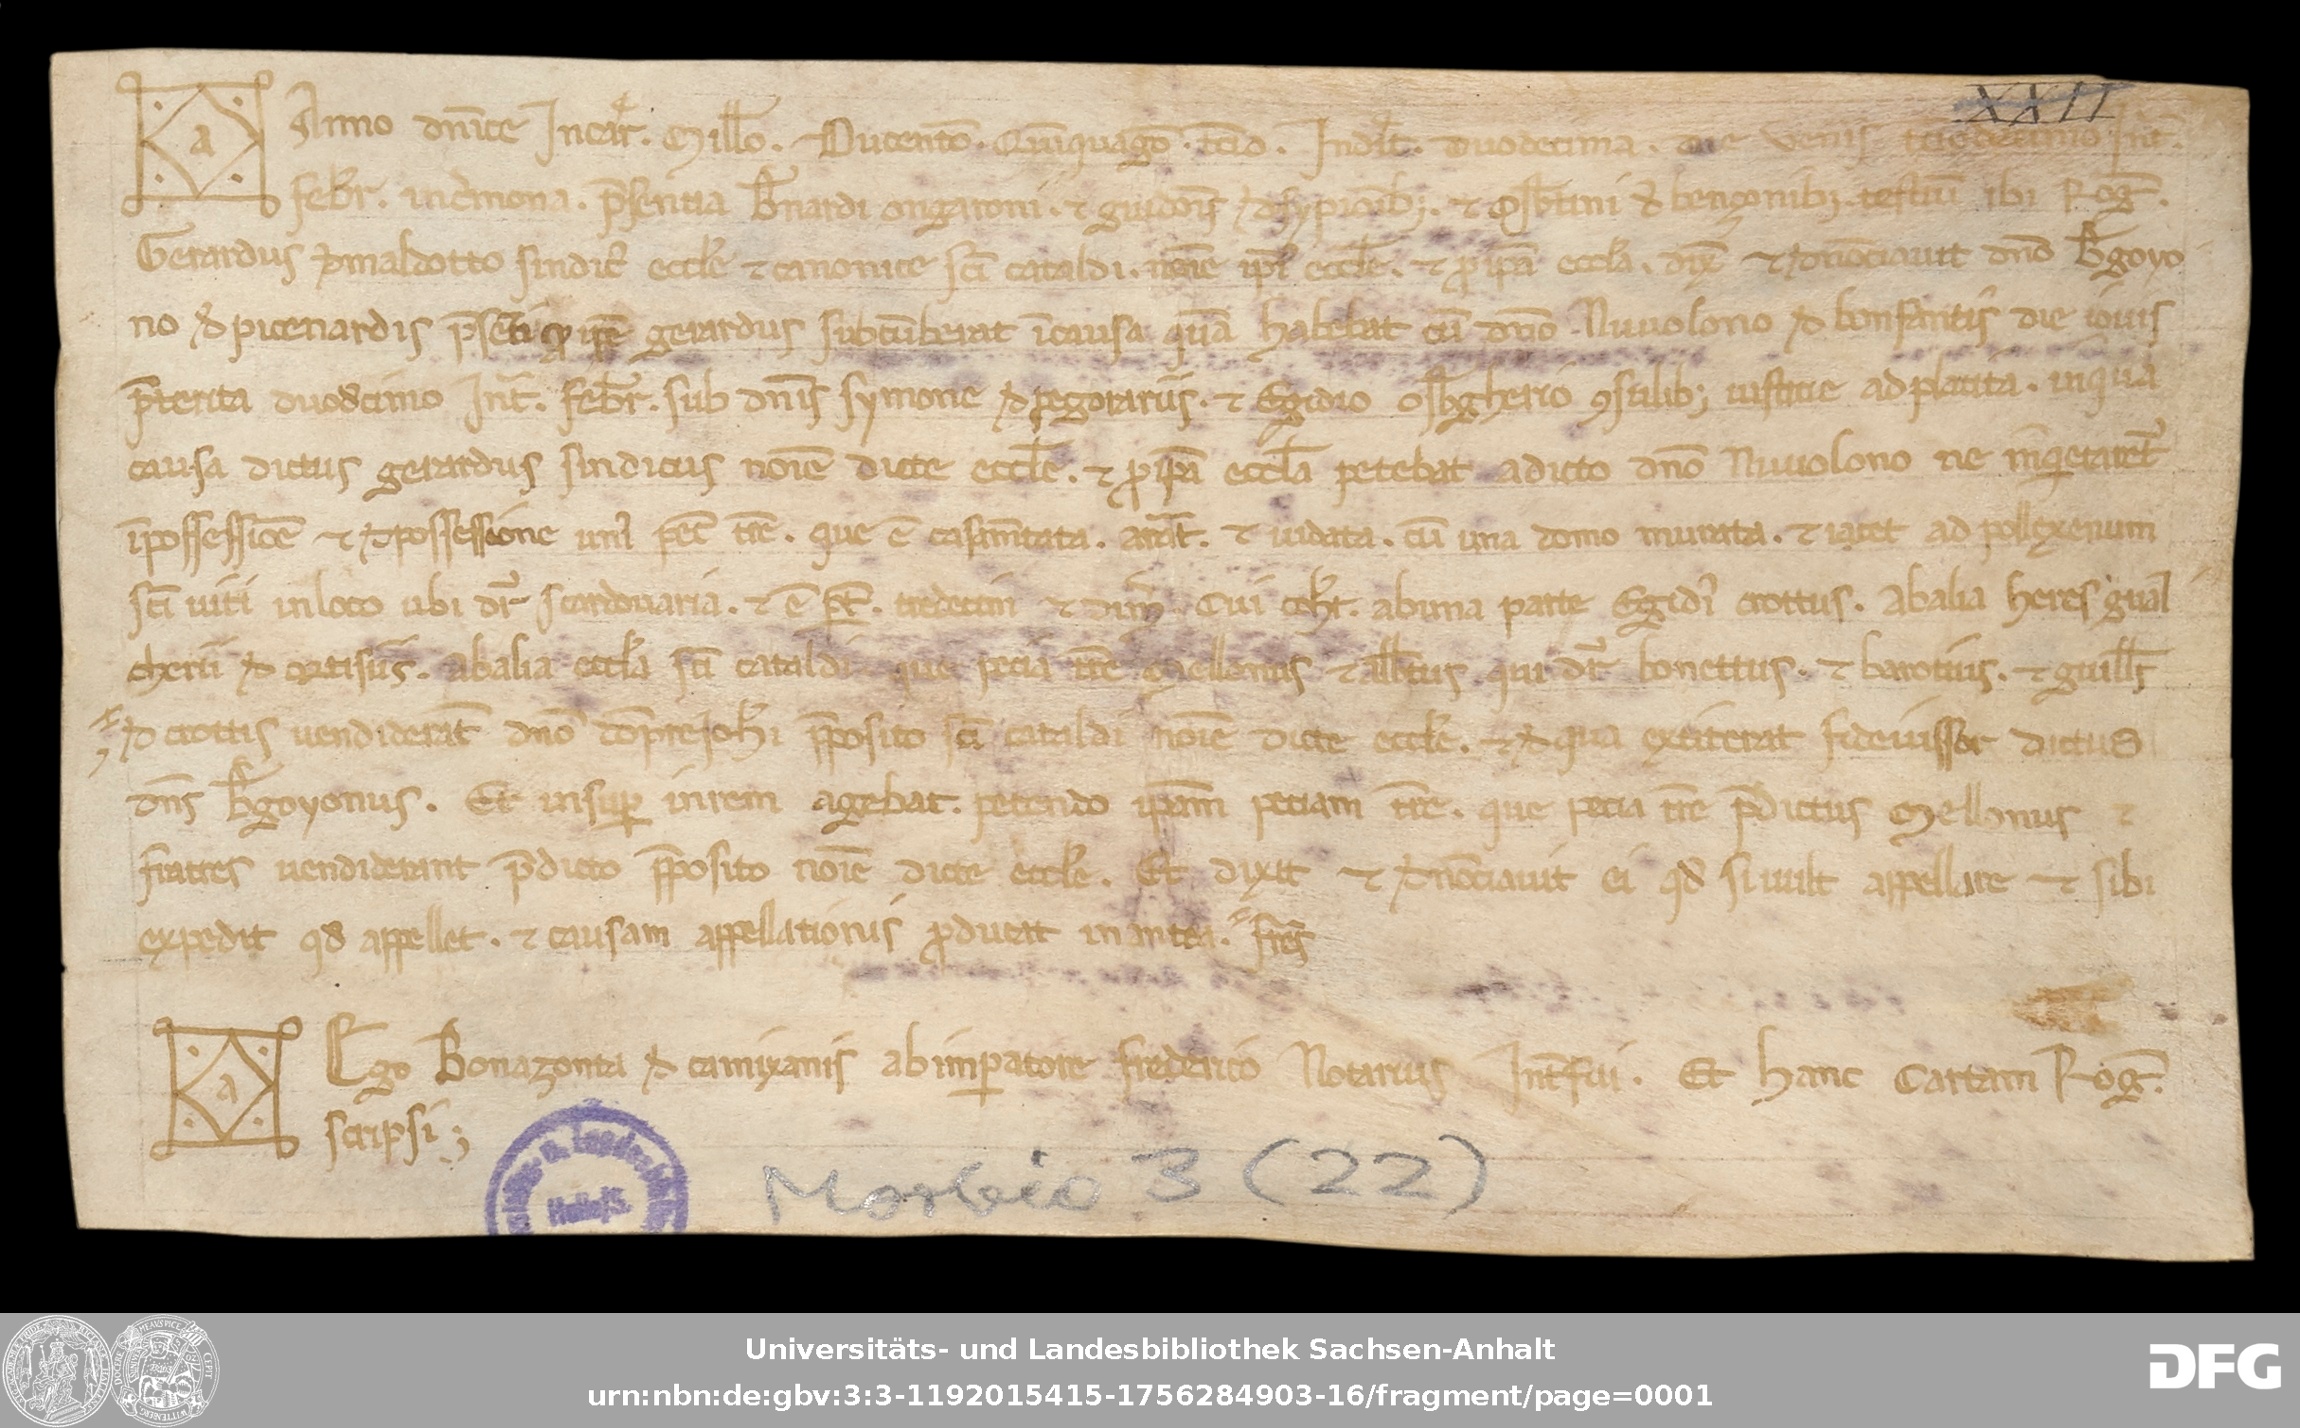 XXII
a Anno dn̄ice Incar̄. Mill̄o. Ducento. Cinquagō. t̄cio. Indic̄t. duodecima. die ven̄is tc̄iodecimo Int̄.
febr̄. in Cremona. p̄sentia B̄nardi ongaroni. ⁊ guidonis de sypionib;. ⁊ Osb̄tini de bençonib; testiū ibi Rog̃.
Gerardus de maldotto sindic̄ eccl̄e ⁊ canonice sc̄i cataldi. noīe ip̄i eccl̄e. ⁊ ꝓ ip̄a eccl̄a. dix̄ ⁊ denōciavit dn̄o B̄goyo
no de picenardis p̄senti ꝙ ip̄e gerardus subcūberat ī causa quā habebat cū dn̄o Nuuolono de bonfantis die iouis
p̄terita duodecimo Int̄. febr̄. sub dn̄is symone de pegorariis. ⁊ Egidio osb̄gherio ꝯsulib; iustitie ad placita. in qua
causa dictus gerardus sindicus noīe dicte eccl̄e. ⁊ ꝓ ip̄a eccl̄a petebat a dicto dn̄o Nuuolono ne inquietaret̄
ī possessiōe ⁊ de possessione uni̓ pec̄ tr̄e. que ē casam̄tata. arat̄. ⁊ uidata. cū una domo murata. ⁊ iacet ad pollexenum
sc̄i uiti in loco ubi dr̄ scardouaria. ⁊ ē p̄t. tredecim ⁊ dim̄. Cui coh̄t. ab una parte Egidi̓ crottus. ab alia heres gual
cherii de cortisiis. ab alia eccl̄a sc̄i cataldi que pecia tr̄e Mellonus ⁊ alb̄tus qui dr̄ bonettus. ⁊ barotius. ⁊ guill̄s
de crottis uendiderāt dn̄o dōpre Joh̄i p̄posito sc̄i cataldi noīe dicte eccl̄e. ⁊ de qua extiterat fideiussor dictus
dn̄s B̄goyonus. Et insuꝑ in rem agebat. petendo ip̄am peciam tr̄e. que pecia tr̄e p̄dictus Mellonus ⁊
fratres uendiderant p̄dicto p̄posito noīe dicte eccl̄e. Et dixit ⁊ denōciauit ei qd̄ si uult appellare ⁊ sibi
expedit qd̄ appellet. ⁊ causam appellationis ꝓducat in antea. fr̄es
a Ego Bonazonta de camixanis ab imꝑatore frederico Notarius Int̄fui. Et hanc Cartam Rog̃.
scripsi;
Morbio 3 (22)
Universitäts- und Landesbibliothek Sachsen-Anhalt
urn:nbn:de:gbv:3:3-1192015415-1756284903-16/fragment/page=0001
DFG